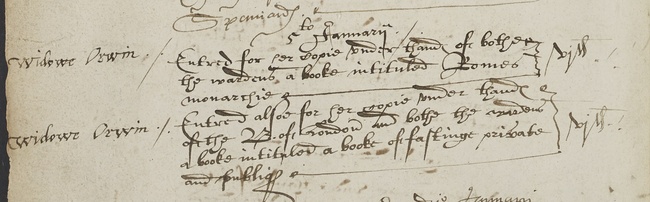 Spaniard
5to Januarii
Widowe Orwin . / . Entred for her copie under thands of bothe
the wardens, a booke intituled Romes vjd /.
monarchie
Widowe Orwin : / . Entred alsoe for her copie under thands
of the B. of London and bothe the wardens vjd /.
a booke intituled a booke of fastinge private
and publiq
Januarij